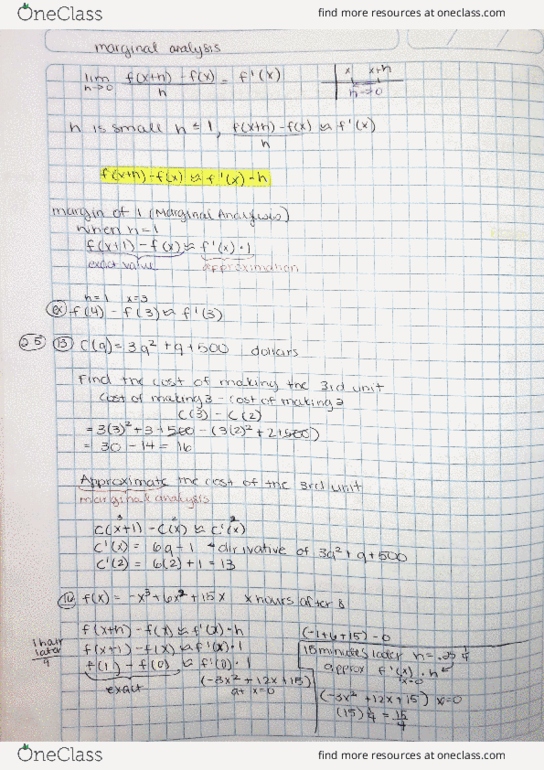 OneClass
find more resources at oneclass.com
marginal analysis
lim h→0 f(x+h) - f(x) / h = f'(x)
x x+h
h→0
h is small h ≤ 1, f(x+h) - f(x) / h ≈ f'(x)
f(x+h) - f(x) ≈ f'(x) · h
margin of 1 (Marginal Analysis)
when h=1
f(x+1) - f(x) ≈ f'(x) · 1
exact value approximation
h=1 x=3
ex f(4) - f(3) ≈ f'(3)
2.5 13 C(q) = 3q² + q + 500 dollars
Find the cost of making the 3rd unit
Cost of making 3 - cost of making 2
C(3) - C(2)
= 3(3)² + 3 + 500 - (3(2)² + 2 + 500)
= 30 - 14 = 16
Approximate the cost of the 3rd unit
marginal analysis
C(x+1) - C(x) ≈ C'(x)
C'(x) = 6q + 1 derivative of 3q² + q + 500
C'(2) = 6(2) + 1 = 13
16 f(x) = -x³ + 6x² + 15x x hours after 8
f(x+h) - f(x) ≈ f'(x) · h
1 hour later
f(x+1) - f(x) ≈ f'(x) · 1
f(1) - f(0) ≈ f'(0) · 1
exact
(-3x² + 12x + 15)
at x=0
(-1+6+15) - 0
15 minutes later h = .25 1/4
approx f'(x) · h
x=0
(-3x² + 12x + 15) x=0
(15) 1/4 = 15/4
OneClass
find more resources at oneclass.com